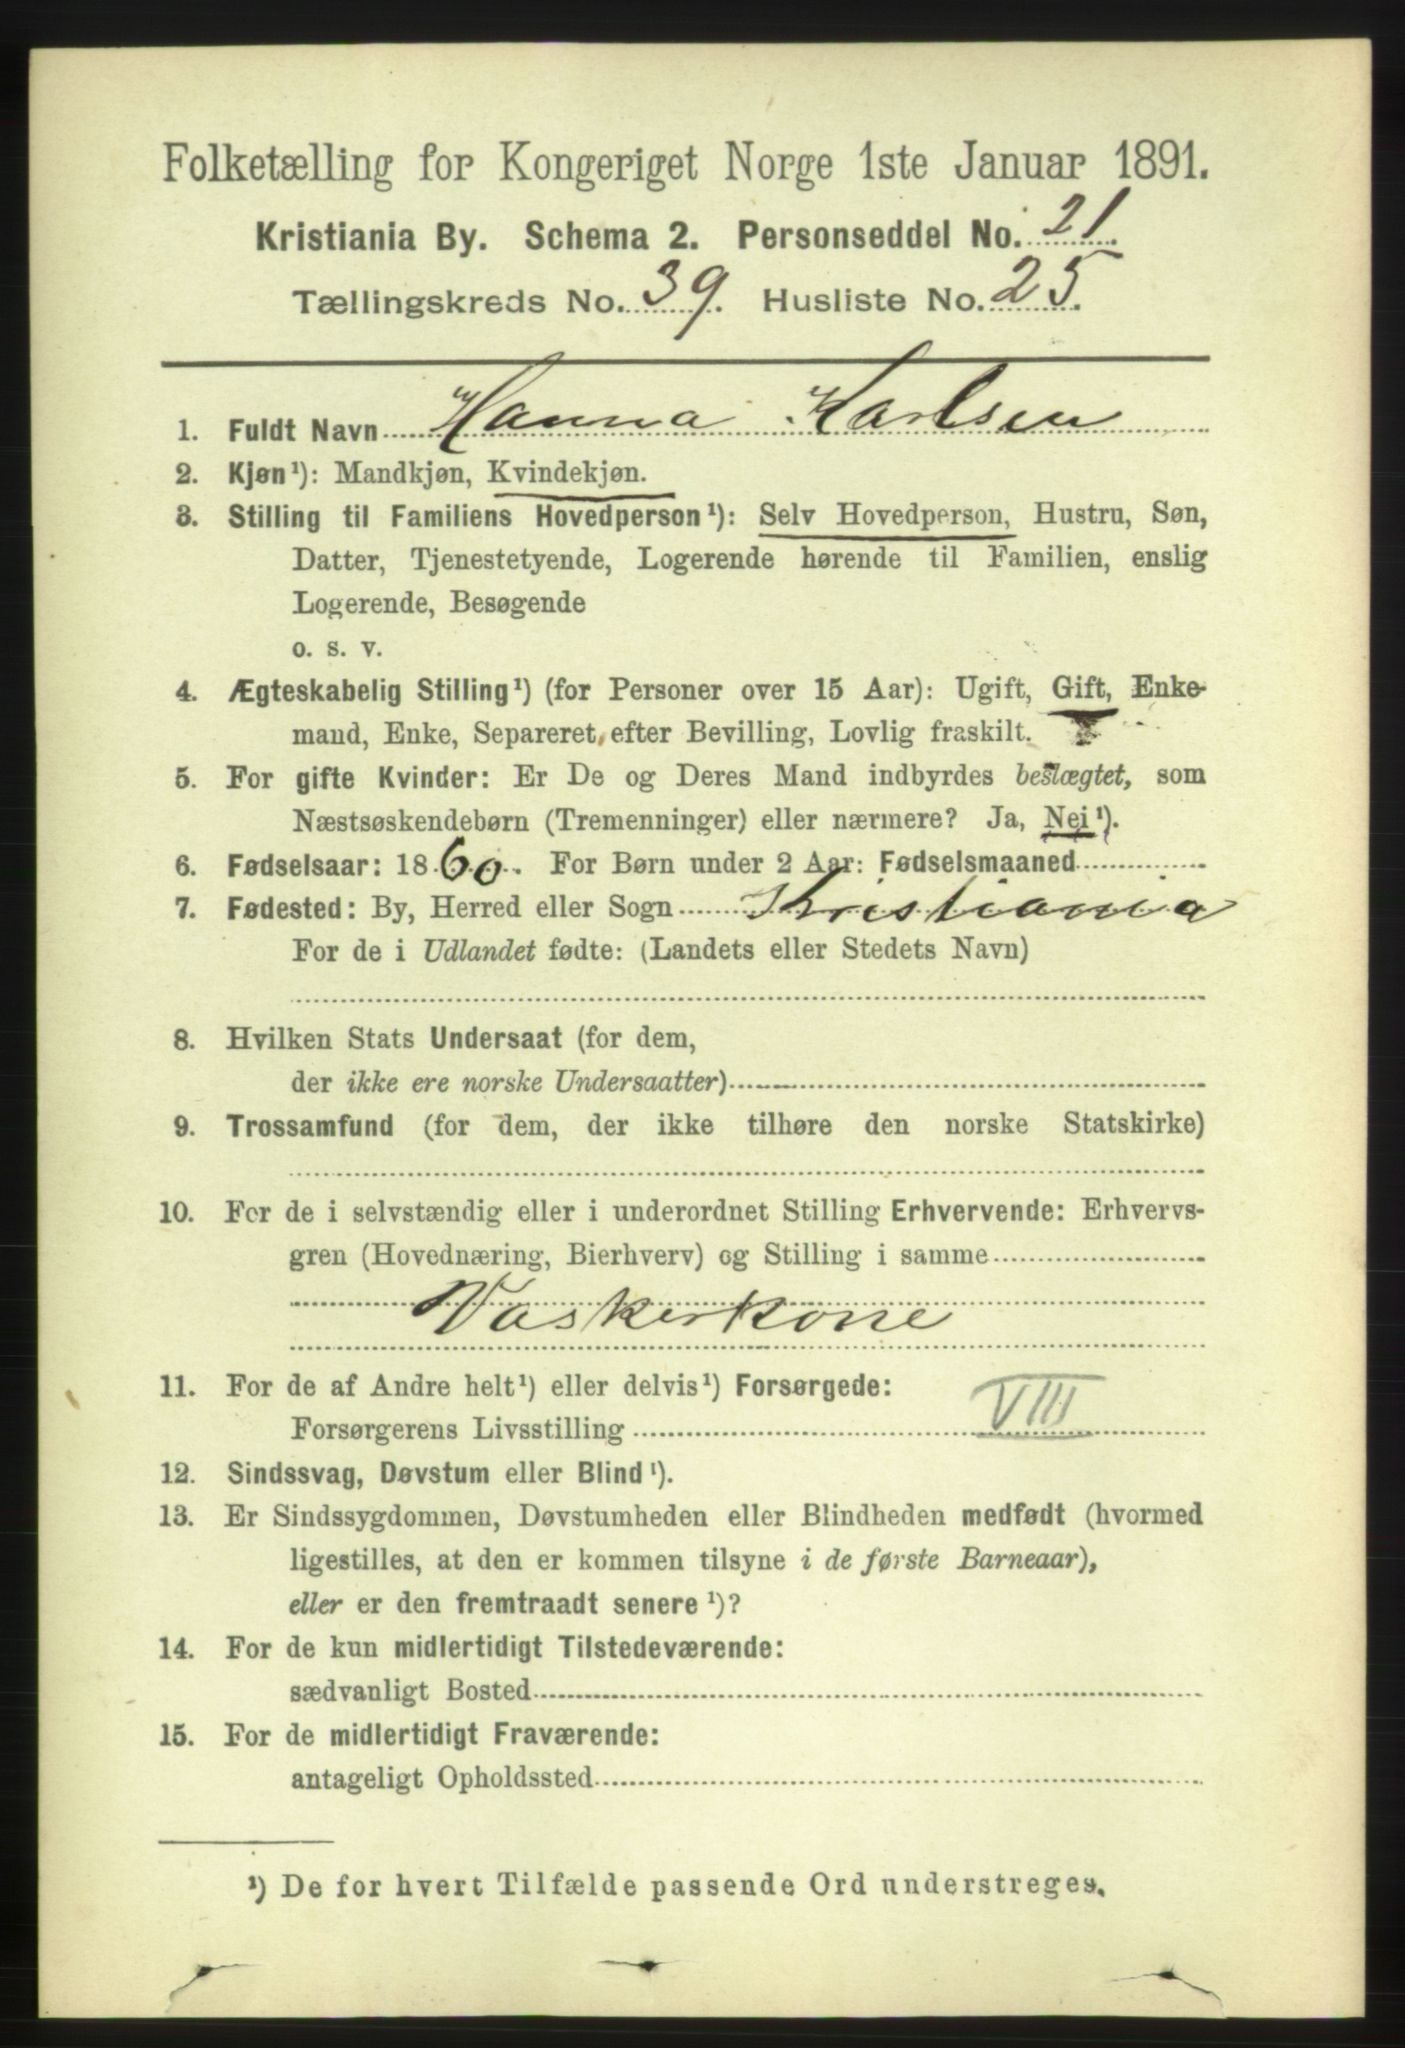 Folketælling for Kongeriget Norge 1ste Januar 1891.
Kristiania By. Schema 2. Personseddel No. 21.
Tællingskreds No. 39. Husliste No. 25.
1. Fuldt Navn Hanna Karlsen
2. Kjøn¹): Mandkjøn, Kvindekjøn.
3. Stilling til Familiens Hovedperson¹): Selv Hovedperson, Hustru, Søn,
Datter, Tjenestetyende, Logerende hørende til Familien, enslig
Logerende, Besøgende
o. s. v.
4. Ægteskabelig Stilling¹) (for Personer over 15 Aar): Ugift, Gift, Enke-
mand, Enke, Separeret efter Bevilling, Lovlig fraskilt.
5. For gifte Kvinder: Er De og Deres Mand indbyrdes beslægtet, som
Næstsøskendebørn (Tremenninger) eller nærmere? Ja, Nei¹).
6. Fødselsaar: 1860. For Børn under 2 Aar: Fødselsmaaned
7. Fødested: By, Herred eller Sogn Kristiania
For de i Udlandet fødte: (Landets eller Stedets Navn)
8. Hvilken Stats Undersaat (for dem,
der ikke ere norske Undersaatter)
9. Trossamfund (for dem, der ikke tilhøre den norske Statskirke)
10. For de i selvstændig eller i underordnet Stilling Erhvervende: Erhvervs-
gren (Hovednæring, Bierhverv) og Stilling i samme
Vaskerkone
11. For de af Andre helt¹) eller delvis¹) Forsørgede:
Forsørgerens Livsstilling VIII
12. Sindssvag, Døvstum eller Blind¹).
13. Er Sindssygdommen, Døvstumheden eller Blindheden medfødt (hvormed
ligestilles, at den er kommen tilsyne i de første Barneaar),
eller er den fremtraadt senere¹)?
14. For de kun midlertidigt Tilstedeværende:
sædvanligt Bosted
15. For de midlertidigt Fraværende:
antageligt Opholdssted
¹) De for hvert Tilfælde passende Ord understreges.